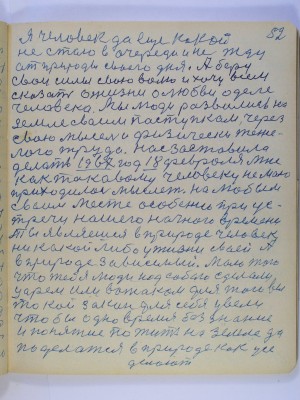 52
Я человек да еще какой
не стаю в очереди и не жду
от природы своего дня. А беру
свои силы свою волю и хочу всем
сказать о жизни о любви о деле
человека. Мы люди развились на
земле своим поступкам, через
свою мысел и физически тяже-
лого труда. нас заставила
делать 1967 год 18 февраля мне
как такавому человеку не мало
приходилос мыслет на любым
своим месте особенно при ус-
тречи нашего начного времени
Ты являешся в природе человек
ни какой либо у жизни своей А
в природе зависимый. Мало того
что тебя люди под собою сделали
царем или вожаком для того вы
такой закон для себя увели
чтобы одно время без знание
и понятие пожить на земле да
поделатся в природе как усе
делают